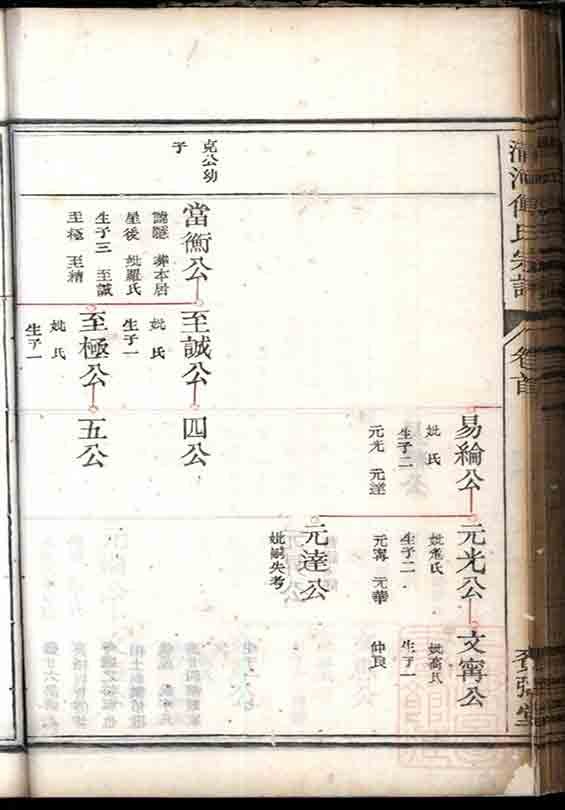 傅氏宗譜
卷首
易綸公
妣 氏
生子二
元光 元達
元光公
生子二
元甯 元華
文甯公
妣高氏
生子一
仲良
元達公
妣嗣失考
克公幼
子
當衡公
葬本居
屋後 妣羅氏
生子三 至誠
至極 至精
至誠公
妣 氏
生子一
四公
至極公
妣 氏
生子一
五公